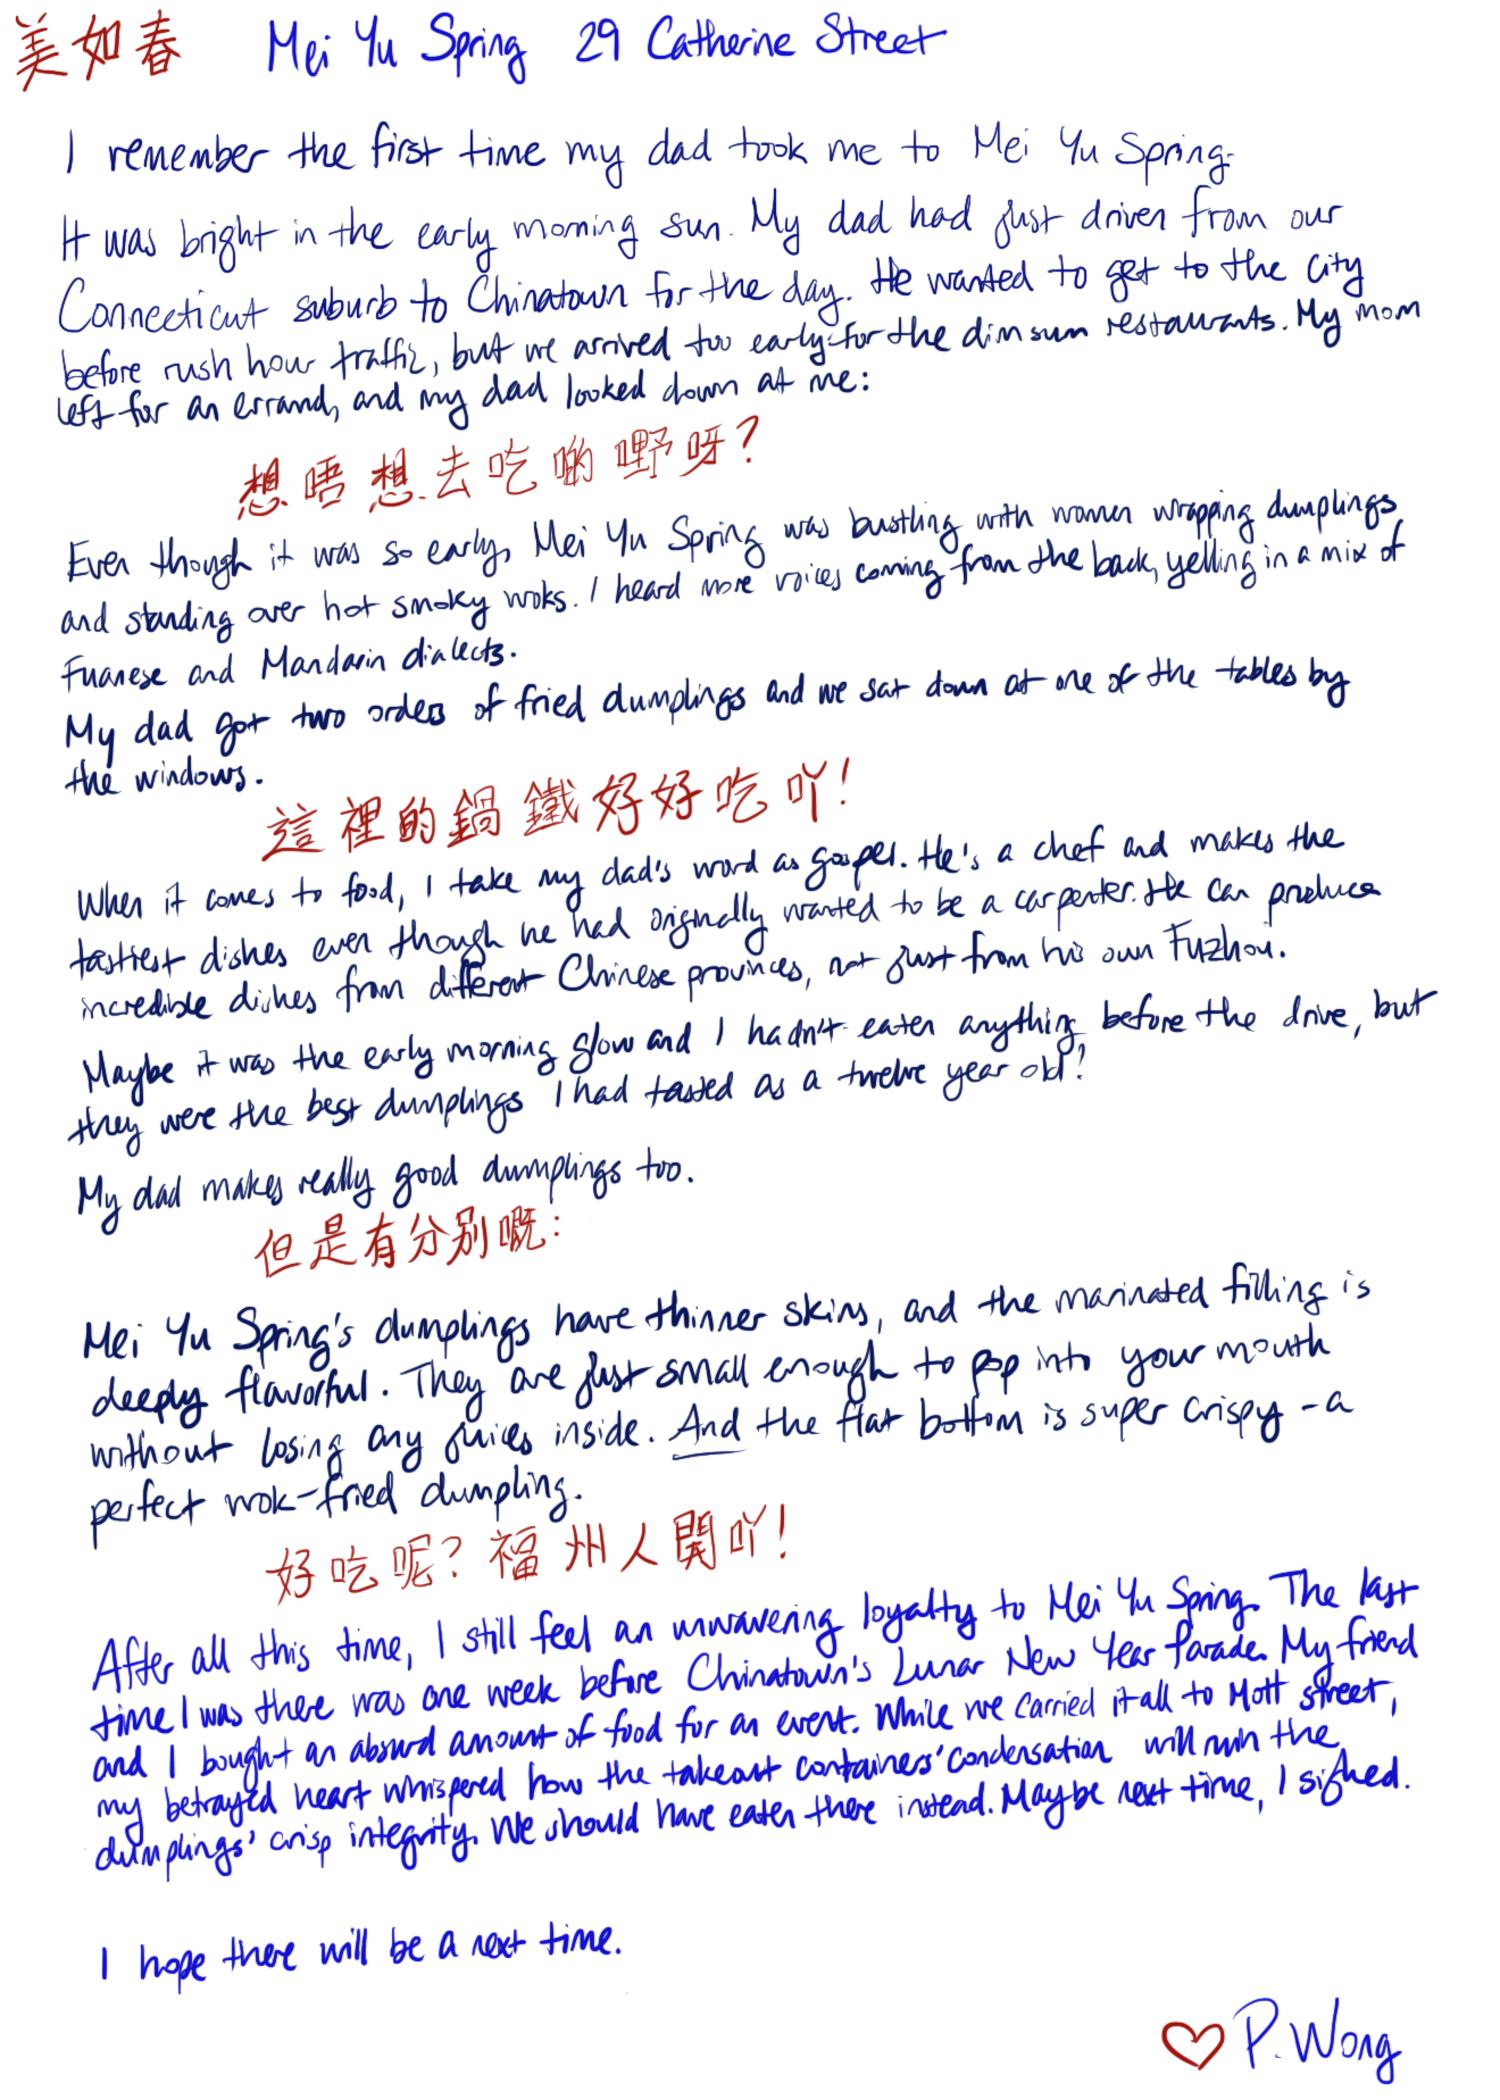 美如春 Mei Yu Spring 29 Catherine Street
I remember the first time my dad took me to Mei Yu Spring.
It was bright in the early morning sun. My dad had just driven from our
Connecticut suburb to Chinatown for the day. He wanted to get to the city
before rush hour traffic, but we arrived too early for the dim sum restaurants. My mom
left for an errand, and my dad looked down at me:
想唔想去吃啲嘢呀?
Even though it was so early, Mei Yu Spring was bustling with women wrapping dumplings
and standing over hot smoky woks. I heard more voices coming from the back, yelling in a mix of
Fuanese and Mandarin dialects.
My dad got two orders of fried dumplings and we sat down at one of the tables by
the windows.
這裡的鍋鐵好好吃吖!
When it comes to food, I take my dad's word as gospel. He's a chef and makes the
tastiest dishes even though he had originally wanted to be a carpenter. He can produce
incredible dishes from different Chinese provinces, not just from his own Fuzhou.
Maybe it was the early morning glow and I hadn't eaten anything before the drive, but
they were the best dumplings I had tasted as a twelve year old!
My dad makes really good dumplings too.
但是有分別嘅:
Mei Yu Spring's dumplings have thinner skins, and the marinated filling is
deeply flavorful. They are just small enough to pop into your mouth
without losing any juices inside. And the flat bottom is super crispy - a
perfect wok-fried dumpling.
好吃呢?福州人開吖!
After all this time, I still feel an unwavering loyalty to Mei Yu Spring. The last
time I was there was one week before Chinatown's Lunar New Year Parade. My friend
and I bought an absurd amount of food for an event. While we carried it all to Mott street,
my betrayed heart whispered how the takeout containers' condensation will ruin the
dumplings' crisp integrity. We should have eaten there instead. Maybe next time, I sighed.
I hope there will be a next time.
♡ P. Wong